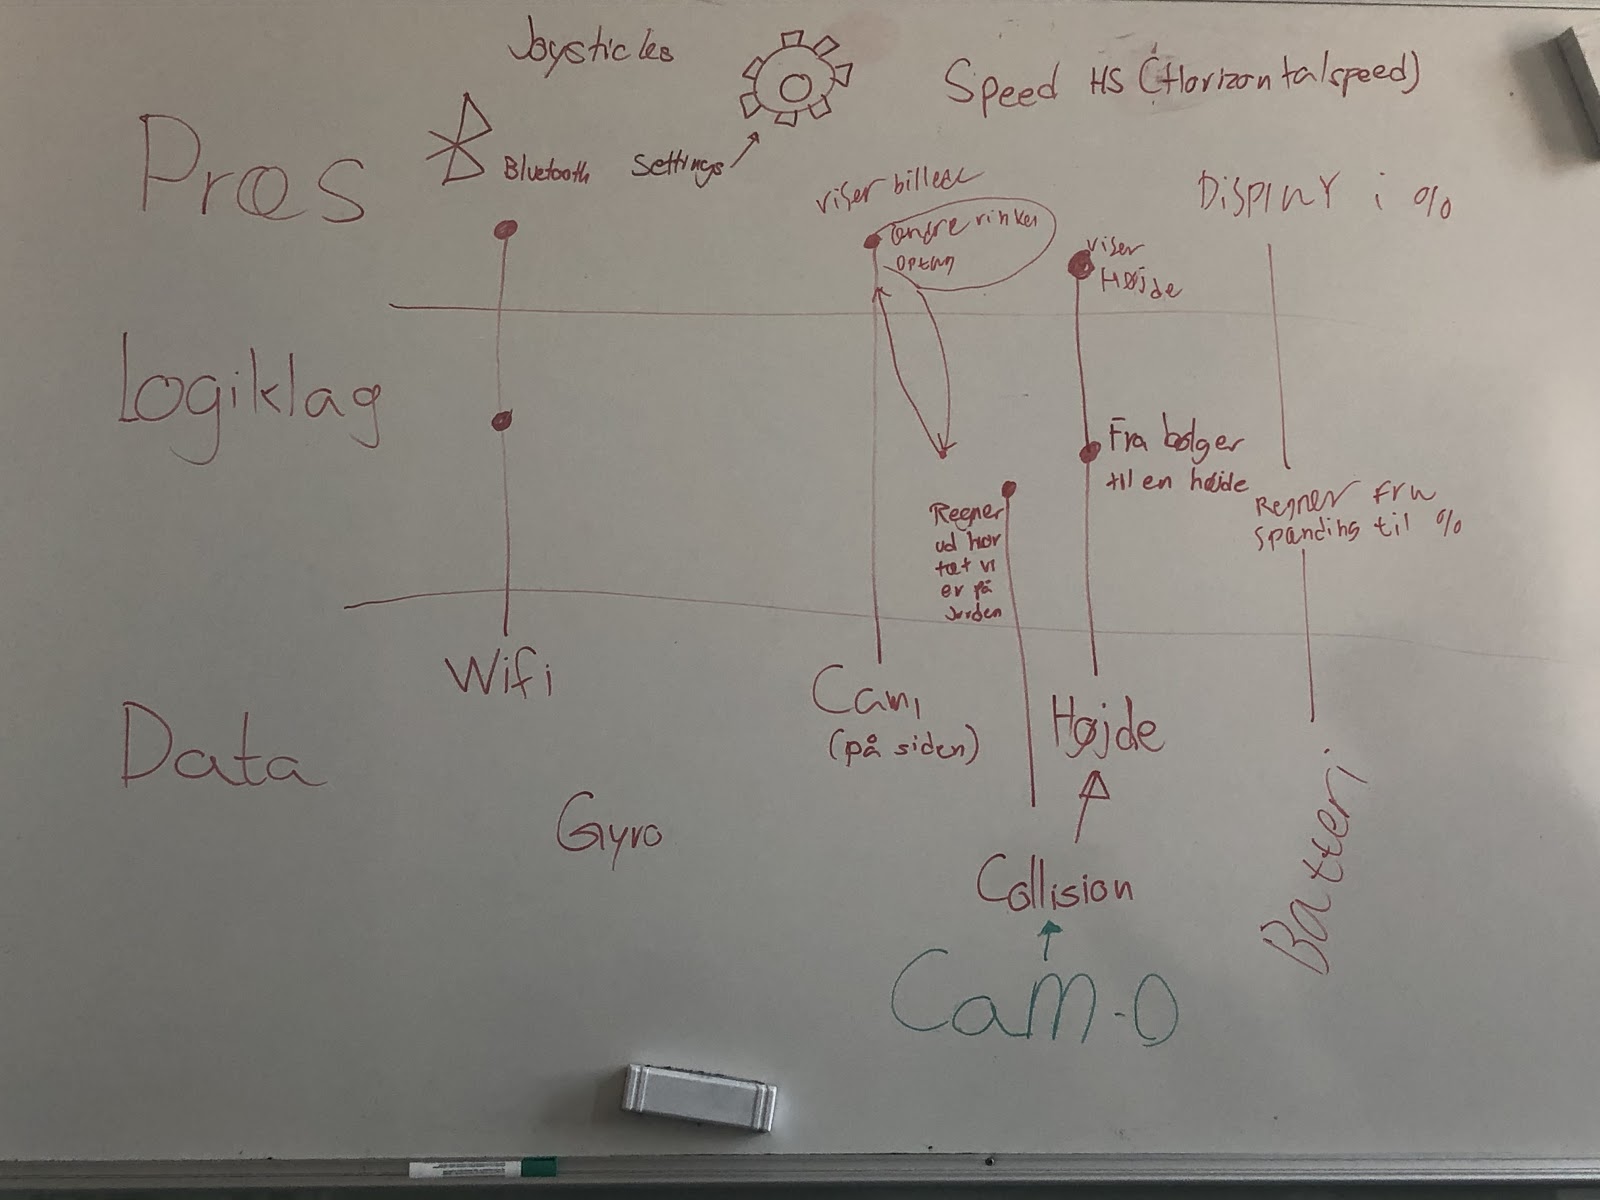 Joysticks
Speed HS (Horizontalspeed)
Præs
Bluetooth
Settings
viser billede
ændre vinkel
OPtag
viser
Højde
DISPLAY i %
Logiklag
Fra bølger
til en højde
Regner
ud hvor
tæt vi
er på
Jorden
Regner fra
spænding til %
Wifi
Cam1
(på siden)
Højde
Data
Gyro
Collision
Batteri
CaM-D